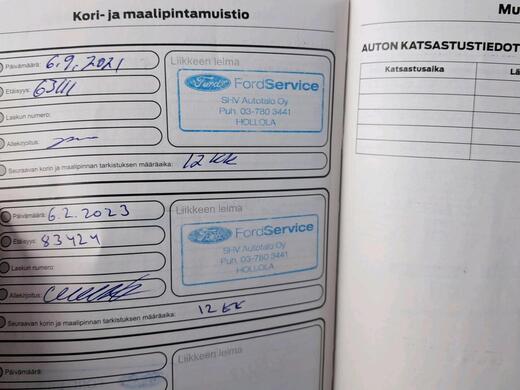 Kori- ja maalipintamuistio
Päivämäärä: 6.9.2021
Liikkeen leima
Etäisyys: 63111
Ford FordService
SHV Autotalo Oy
Puh. 03-780 3441
HOLLOLA
Laskun numero:
Allekirjoitus:
Seuraavan korin ja maalipinnan tarkistuksen määräaika: 12 KK
Päivämäärä: 6.2.2023
Liikkeen leima
Etäisyys: 83424
Ford FordService
SHV Autotalo Oy
Puh. 03-780 3441
HOLLOLA
Laskun numero:
Allekirjoitus:
Seuraavan korin ja maalipinnan tarkistuksen määräaika: 12 KK
Liikkeen leima
Päivämäärä:
Mu
AUTON KATSASTUSTIEDOT
Katsastusaika
Lä